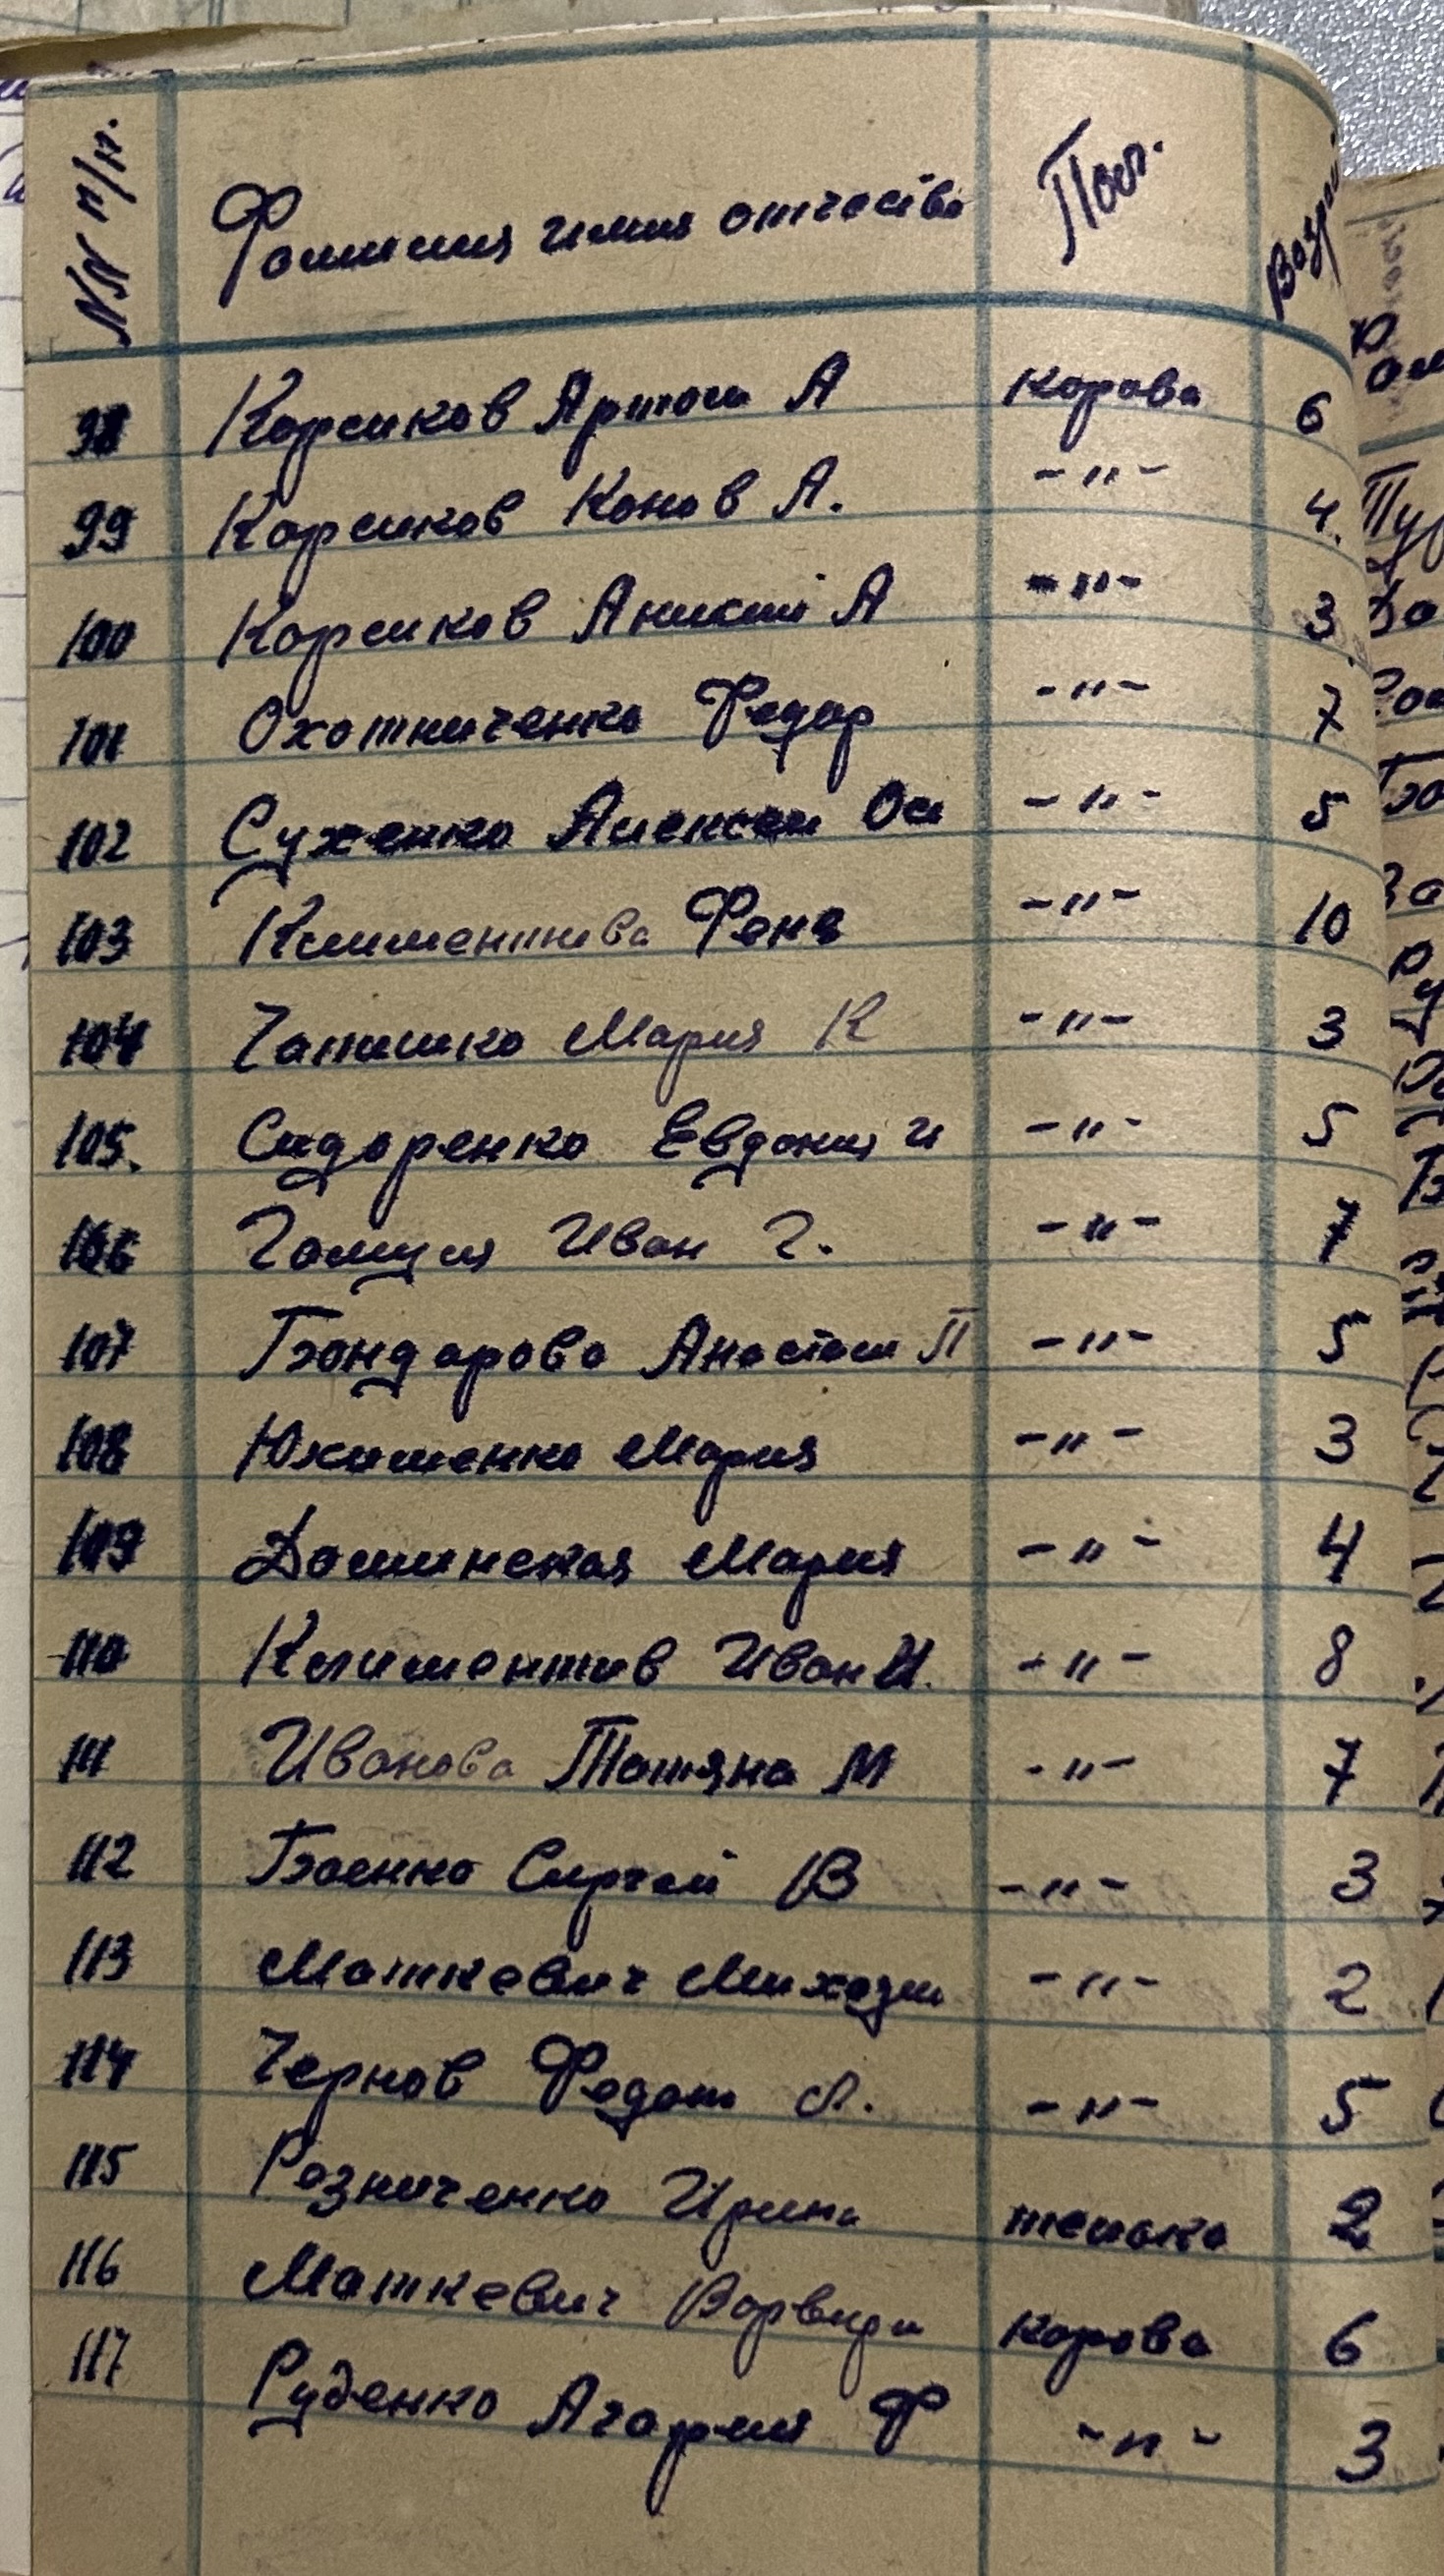 NN п/п. Фамилия имия отчество Пол. Возра
98 Корсиков Артем А корова 6
99 Корсиков Конов А. -"- 4.
100 Корсиков Аникий А -"- 3
101 Охотниченко Федор -"- 7
102 Суженко Алексеи Ос -"- 5
103 Климентива Фена -"- 10
104 Мария К -"- 3
105. Сидоренко Евдокия И -"- 5
106 Иван Г. -"- 7
107 Бондарова Анастаси П -"- 5
108 Юхименко Мария -"- 3
109 Долинская Мария -"- 4
110 Климентив Иван И. -"- 8
111 Иванова Татяна М -"- 7
112 Боенко Сиргей В -"- 3
113 Маткевич -"- 2
114 Чернов Федот А. -"- 5
115 Резниченко Ирина телока 2
116 Маткевич Варвари корова 6
117 Руденко Агафия Ф -"- 3